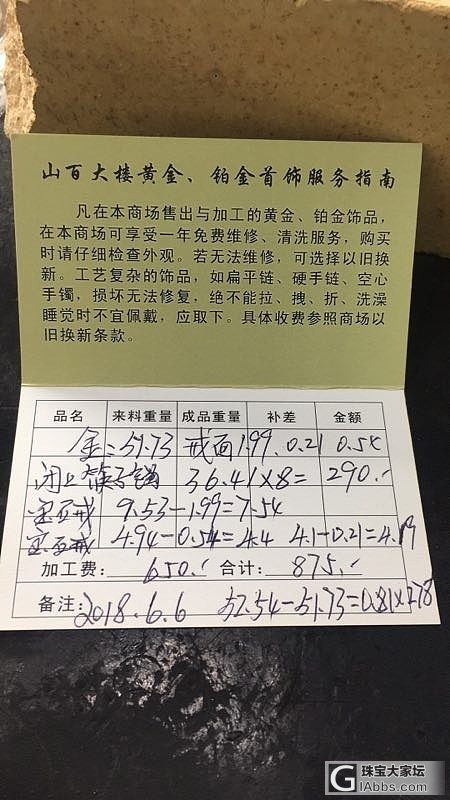 山百大楼黄金、铂金首饰服务指南
凡在本商场售出与加工的黄金、铂金饰品，
在本商场可享受一年免费维修、清洗服务，购买
时请仔细检查外观。若无法维修，可选择以旧换
新。工艺复杂的饰品，如扁平链、硬手链、空心
手镯，损坏无法修复，绝不能拉、拽、折、洗澡
睡觉时不宜佩戴，应取下。具体收费参照商场以
旧换新条款。
品名 来料重量 成品重量 补差 金额
金：51.73 戒面1.99 0.21 0.54
闭上筷子镯 36.41×8= 290.
宝石戒 9.53-1.99=7.54
宝石戒 4.94-0.54=4.4 4.1-0.21=4.19
加工费：650. 合计：875.
备注：2018.6.6 52.54-51.73=0.81×278
珠宝大家坛
itabbs.com